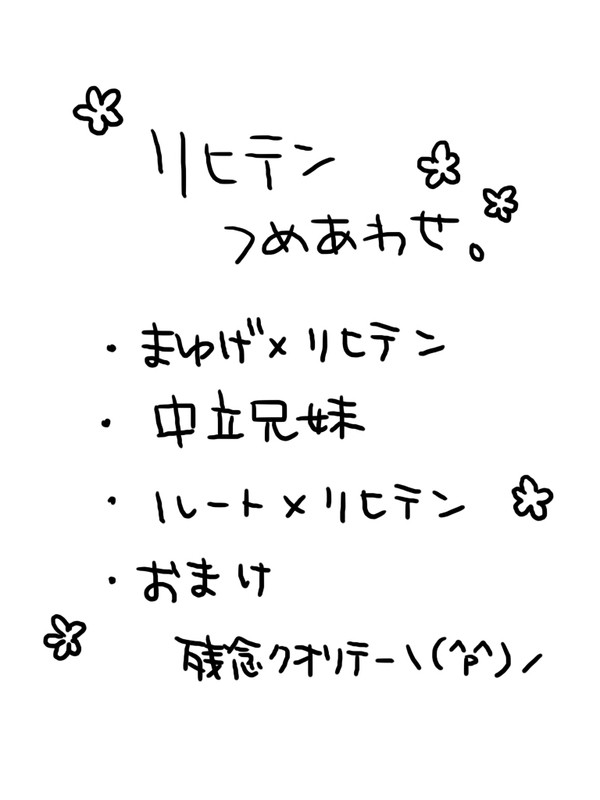 リヒテン
つめあわせ。
・まゆげ×リヒテン
・中立兄妹
・ルート×リヒテン
・おまけ
残念クオリテー\(^p^)/